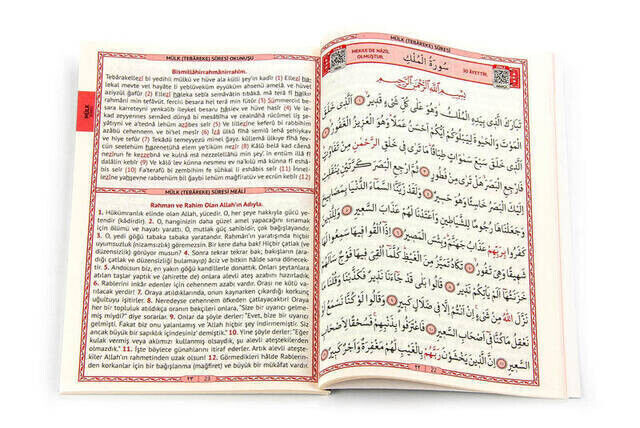 MÜLK (TEBÂREKE) SÛRESİ OKUNUŞU
Bismillâhirrahmânirrahîm.
Tebârakellezî bi yedihil mülkü ve hüve alâ külli şey'in kadîr (1) Ellezî ha-
lekal mevte vel hayâte li yeblüveküm eyyüküm ahsenü amelâ ve hüvel
azîzül ğafûr (2) Ellezî haleka seb'a semâvâtin tıbâkâ mâ terâ fî halkır
rahmâni min tefâvüt, ferciıl besara hel terâ min fütûr (3) Sümmerciıl be-
sara karrateyni yenkalib ileykel besaru hâsiev ve hüve hasîr (4) Ve le-
kad zeyyennes semâed dünyâ bi mesâbîha ve cealnâhâ rucûmel liş şe-
yâtîni ve a'tednâ lehüm azâbes seîr (5) Ve lillezîne keferû bi rabbihim
azâbü cehennem ve bi'sel mesîr (6) İzâ ülkû fîhâ semiû lehâ şehîkav
ve hiye tefûr (7) Tekâdü temeyyezü minel ğayz, küllemâ ülkıye fîhâ fev-
cün seelehüm hazenetühâ elem ye'tiküm nezîr (8) Kâlû belâ kad câenâ
nezîrun fe kezzebnâ ve kulnâ mâ nezzelellâhü min şey', in entüm illâ fî
dalâlin kebîr (9) Ve kâlû lev künnâ nesmeu ev na'kılü mâ künnâ fî ashâ-
bis seîr (10) Fa'terafû bi zembihim fe sühkal li eshâbis seîr (11) İnnel-
lezîne yahşevne rabbehüm bil ğaybi lehüm mağfiratüv ve ecrün kebîr (12)
MÜLK (TEBÂREKE) SÛRESİ MEÂLİ
Rahman ve Rahim Olan Allah'ın Adıyla.
1. Hükümranlık elinde olan Allah, yücedir. O, her şeye hakkıyla gücü ye-
tendir (kâdirdir). 2. O, hanginizin daha güzel amel yapacağını sınamak
için ölümü ve hayatı yarattı. O, mutlak güç sahibidir, çok bağışlayandır.
3. O, yedi göğü tabaka tabaka yaratandır. Rahmân'ın yaratışında hiçbir
uyumsuzluk (nizamsızlık) göremezsin. Bir kere daha bak! Hiçbir çatlak (ve
düzensizlik) görüyor musun? 4. Sonra tekrar tekrar bak; bakışların (ara-
dığı çatlak ve düzensizliği bulamayıp) âciz ve bitkin hâlde sana dönecek-
tir. 5. Andolsun biz, en yakın göğü kandillerle donattık. Onları şeytanlara
atılan taşlar yaptık ve (ahirette de) onlara alevli ateş azabını hazırladık.
6. Rablerini inkâr edenler için cehennem azabı vardır. Orası ne kötü va-
rılacak yerdir! 7. Oraya atıldıklarında, onun kaynarken çıkardığı korkunç
uğultuyu işitirler. 8. Neredeyse cehennem öfkeden çatlayacaktır! Oraya
her bir topluluk atıldıkça oranın bekçileri onlara, "Size bir uyarıcı gelme-
miş miydi?" diye sorarlar. 9. Onlar da şöyle derler: "Evet, bize bir uyarıcı
gelmişti. Fakat biz onu yalanlamış ve 'Allah hiçbir şey indirmemiştir. Siz
ancak büyük bir sapıklık içindesiniz' demiştik." 10. Yine şöyle derler: "Eğer
kulak vermiş veya aklımızı kullanmış olsaydık, şu alevli ateştekilerden
olmazdık." 11. İşte böylece günahlarını itiraf ederler. Artık alevli ateşte-
kiler Allah'ın rahmetinden uzak olsun! 12. Görmedikleri hâlde Rablerin-
den korkanlar için bir bağışlanma (mağfiret) ve büyük bir mükâfat vardır.
٢٣ 23
MÜLK
MÜLK (TEBÂREKE) SÛRESİ
MEKKE'DE NÂZİL
OLMUŞTUR.
سُورَةُ الْمُلْكِ
30 ÂYETTİR.
بِسْمِ اللّٰهِ الرَّحْمٰنِ الرَّحِيمِ
تَبَارَكَ الَّذِي بِيَدِهِ الْمُلْكُ وَهُوَ عَلٰى كُلِّ شَيْءٍ قَدِيرٌ ﴿١﴾ اَلَّذِي خَلَقَ
الْمَوْتَ وَالْحَيٰوةَ لِيَبْلُوَكُمْ اَيُّكُمْ اَحْسَنُ عَمَلًا وَهُوَ الْعَزِيزُ الْغَفُورُ ﴿٢﴾
اَلَّذِي خَلَقَ سَبْعَ سَمٰوَاتٍ طِبَاقًا مَا تَرٰى فِي خَلْقِ الرَّحْمٰنِ مِنْ تَفَاوُتٍ
فَارْجِعِ الْبَصَرَ هَلْ تَرٰى مِنْ فُطُورٍ ﴿٣﴾ ثُمَّ ارْجِعِ الْبَصَرَ كَرَّتَيْنِ يَنْقَلِبْ
اِلَيْكَ الْبَصَرُ خَاسِئًا وَهُوَ حَسِيرٌ ﴿٤﴾ وَلَقَدْ زَيَّنَّا السَّمَاءَ الدُّنْيَا بِمَصَابِيحَ
وَجَعَلْنَاهَا رُجُومًا لِلشَّيَاطِينِ وَاَعْتَدْنَا لَهُمْ عَذَابَ السَّعِيرِ ﴿٥﴾ وَلِلَّذِينَ
كَفَرُوا بِرَبِّهِمْ عَذَابُ جَهَنَّمَ وَبِئْسَ الْمَصِيرُ ﴿٦﴾ اِذَا اُلْقُوا فِيهَا سَمِعُوا لَهَا
شَهِيقًا وَهِيَ تَفُورُ ﴿٧﴾ تَكَادُ تَمَيَّزُ مِنَ الْغَيْظِ كُلَّمَا اُلْقِيَ فِيهَا فَوْجٌ سَاَلَهُمْ
خَزَنَتُهَا اَلَمْ يَأْتِكُمْ نَذِيرٌ ﴿٨﴾ قَالُوا بَلٰى قَدْ جَاءَنَا نَذِيرٌ فَكَذَّبْنَا وَقُلْنَا مَا
نَزَّلَ اللّٰهُ مِنْ شَيْءٍ اِنْ اَنْتُمْ اِلَّا فِي ضَلَالٍ كَبِيرٍ ﴿٩﴾ وَقَالُوا لَوْ كُنَّا نَسْمَعُ اَوْ
نَعْقِلُ مَا كُنَّا فِي اَصْحَابِ السَّعِيرِ ﴿١٠﴾ فَاعْتَرَفُوا بِذَنْبِهِمْ فَسُحْقًا لِاَصْحَابِ
السَّعِيرِ ﴿١١﴾ اِنَّ الَّذِينَ يَخْشَوْنَ رَبَّهُمْ بِالْغَيْبِ لَهُمْ مَغْفِرَةٌ وَاَجْرٌ كَبِيرٌ ﴿١٢﴾
٢٢ 22